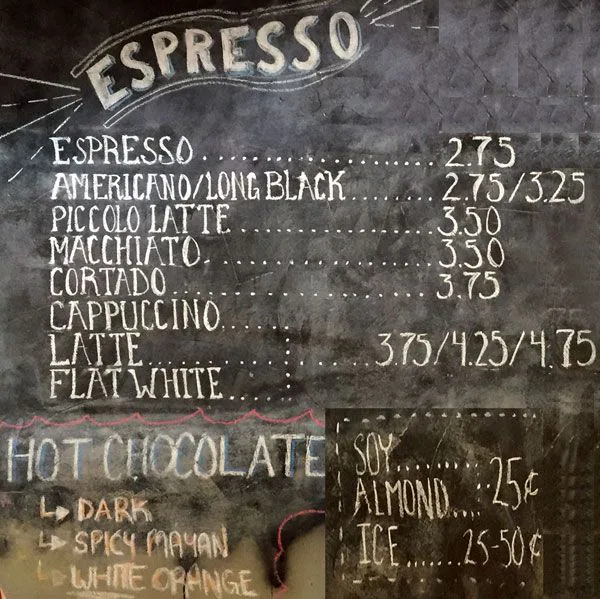 ESPRESSO
ESPRESSO.......................2.75
AMERICANO/LONG BLACK........2.75/3.25
PICCOLO LATTE..................3.50
MACCHIATO.....................3.50
CORTADO.......................3.75
CAPPUCCINO.....
LATTE............3.75/4.25/4.75
FLAT WHITE.....
HOT CHOCOLATE
↳ DARK
↳ SPICY MAYAN
↳ WHITE ORANGE
SOY........
ALMOND.... 25¢
ICE.......25-50¢